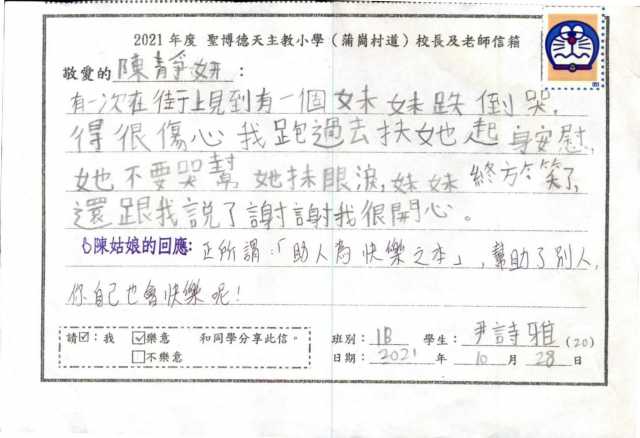 2021 年度 聖博德天主教小學（蒲崗村道）校長及老師信箱
敬愛的 陳靜妍：
有一次在街上見到有一個妹妹跌倒哭，
得很傷心我跑過去扶她起身安慰，
她不要哭幫她抹眼淚，妹妹終於笑了，
還跟我說了謝謝我很開心。
陳姑娘的回應：正所謂：「助人為快樂之本」，幫助了別人，
你自己也會快樂呢！
請☑：我 ☑樂意 和同學分享此信。 班別：1B 學生：尹詩雅 (20)
□不樂意 日期：2021 年 10 月 28 日